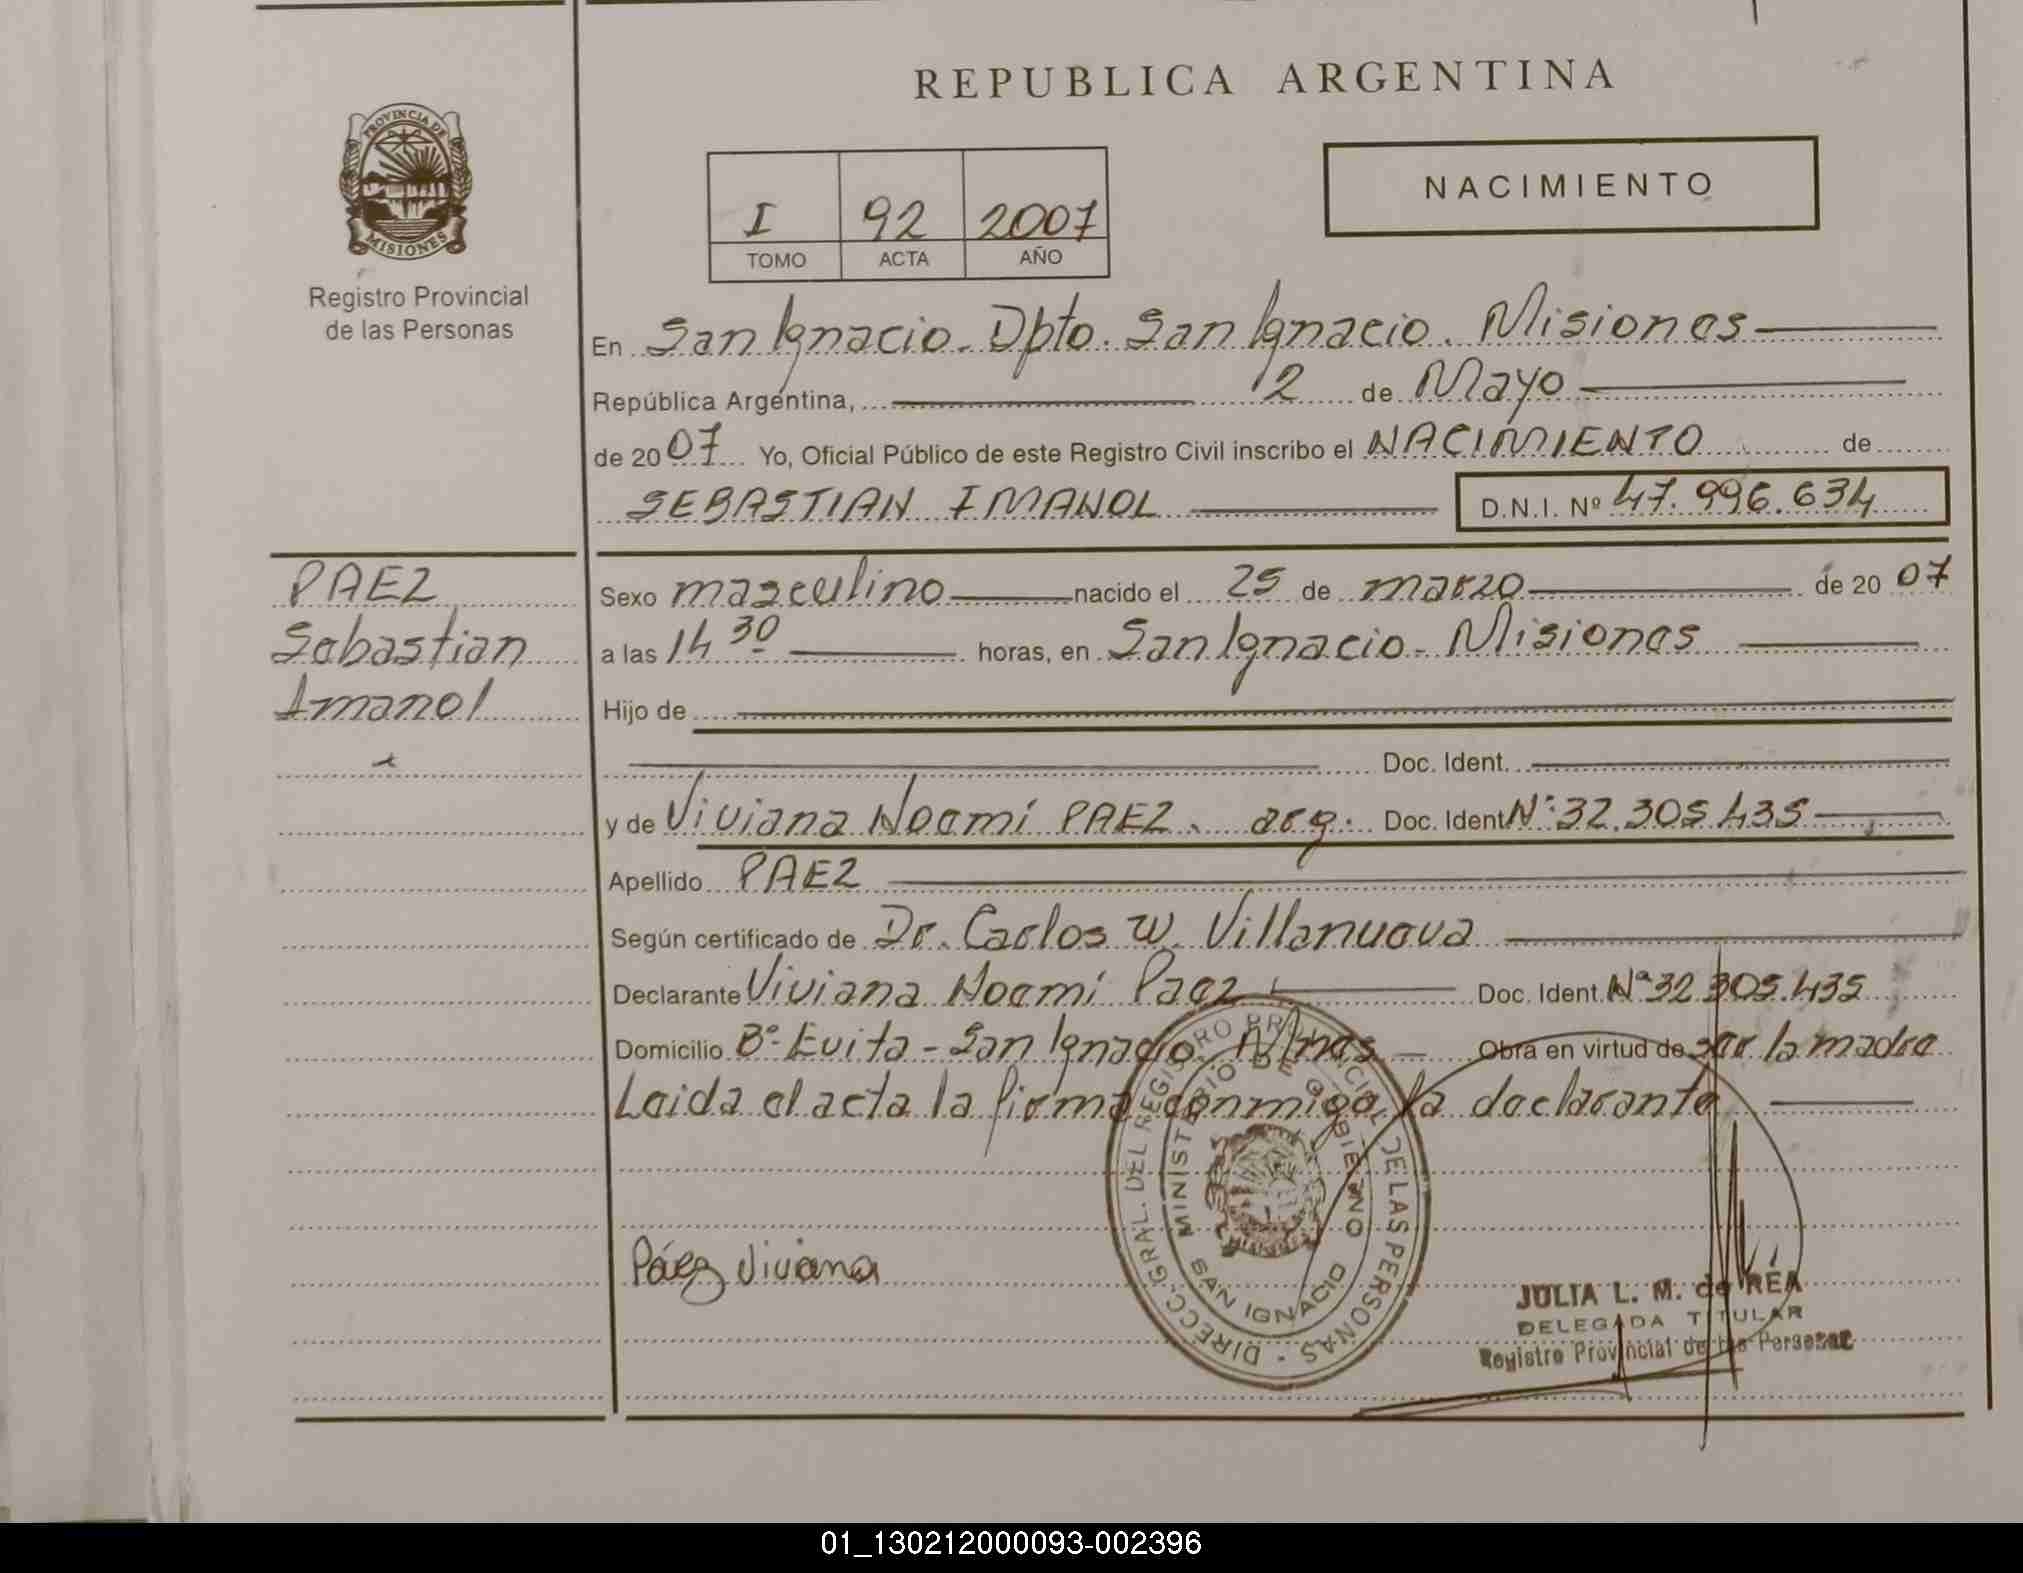 REPUBLICA ARGENTINA
PROVINCIA DE MISIONES
Registro Provincial
de las Personas
I 92 2007
TOMO ACTA AÑO
NACIMIENTO
En San Ignacio. Dpto. San Ignacio. Misiones
República Argentina, 2 de Mayo
de 2007 Yo, Oficial Público de este Registro Civil inscribo el NACIMIENTO de
SEBASTIAN IMANOL D.N.I. Nº 47.996.634
PAEZ
Sebastian
Imanol
Sexo masculino nacido el 25 de marzo de 2007
a las 14 30 horas, en San Ignacio - Misiones
Hijo de
Doc. Ident.
y de Viviana Noemí PAEZ. arg. Doc. Ident Nº 32.305.435
Apellido PAEZ
Según certificado de Dr. Carlos W. Villanueva
Declarante Viviana Noemí Paez Doc. Ident. Nº 32.305.435
Domicilio Bº Evita - San Ignacio. Mnes Obra en virtud de ser la madre
Leida el acta la firma conmigo, la declarante
Páez Viviana
DIRECC. GRAL. DEL REGISTRO PROVINCIAL DE LAS PERSONAS
MINISTERIO DE GOBIERNO
SAN IGNACIO
JULIA L. M. de RÉA
DELEGADA TITULAR
Registro Provincial de las Personas
01_130212000093-002396